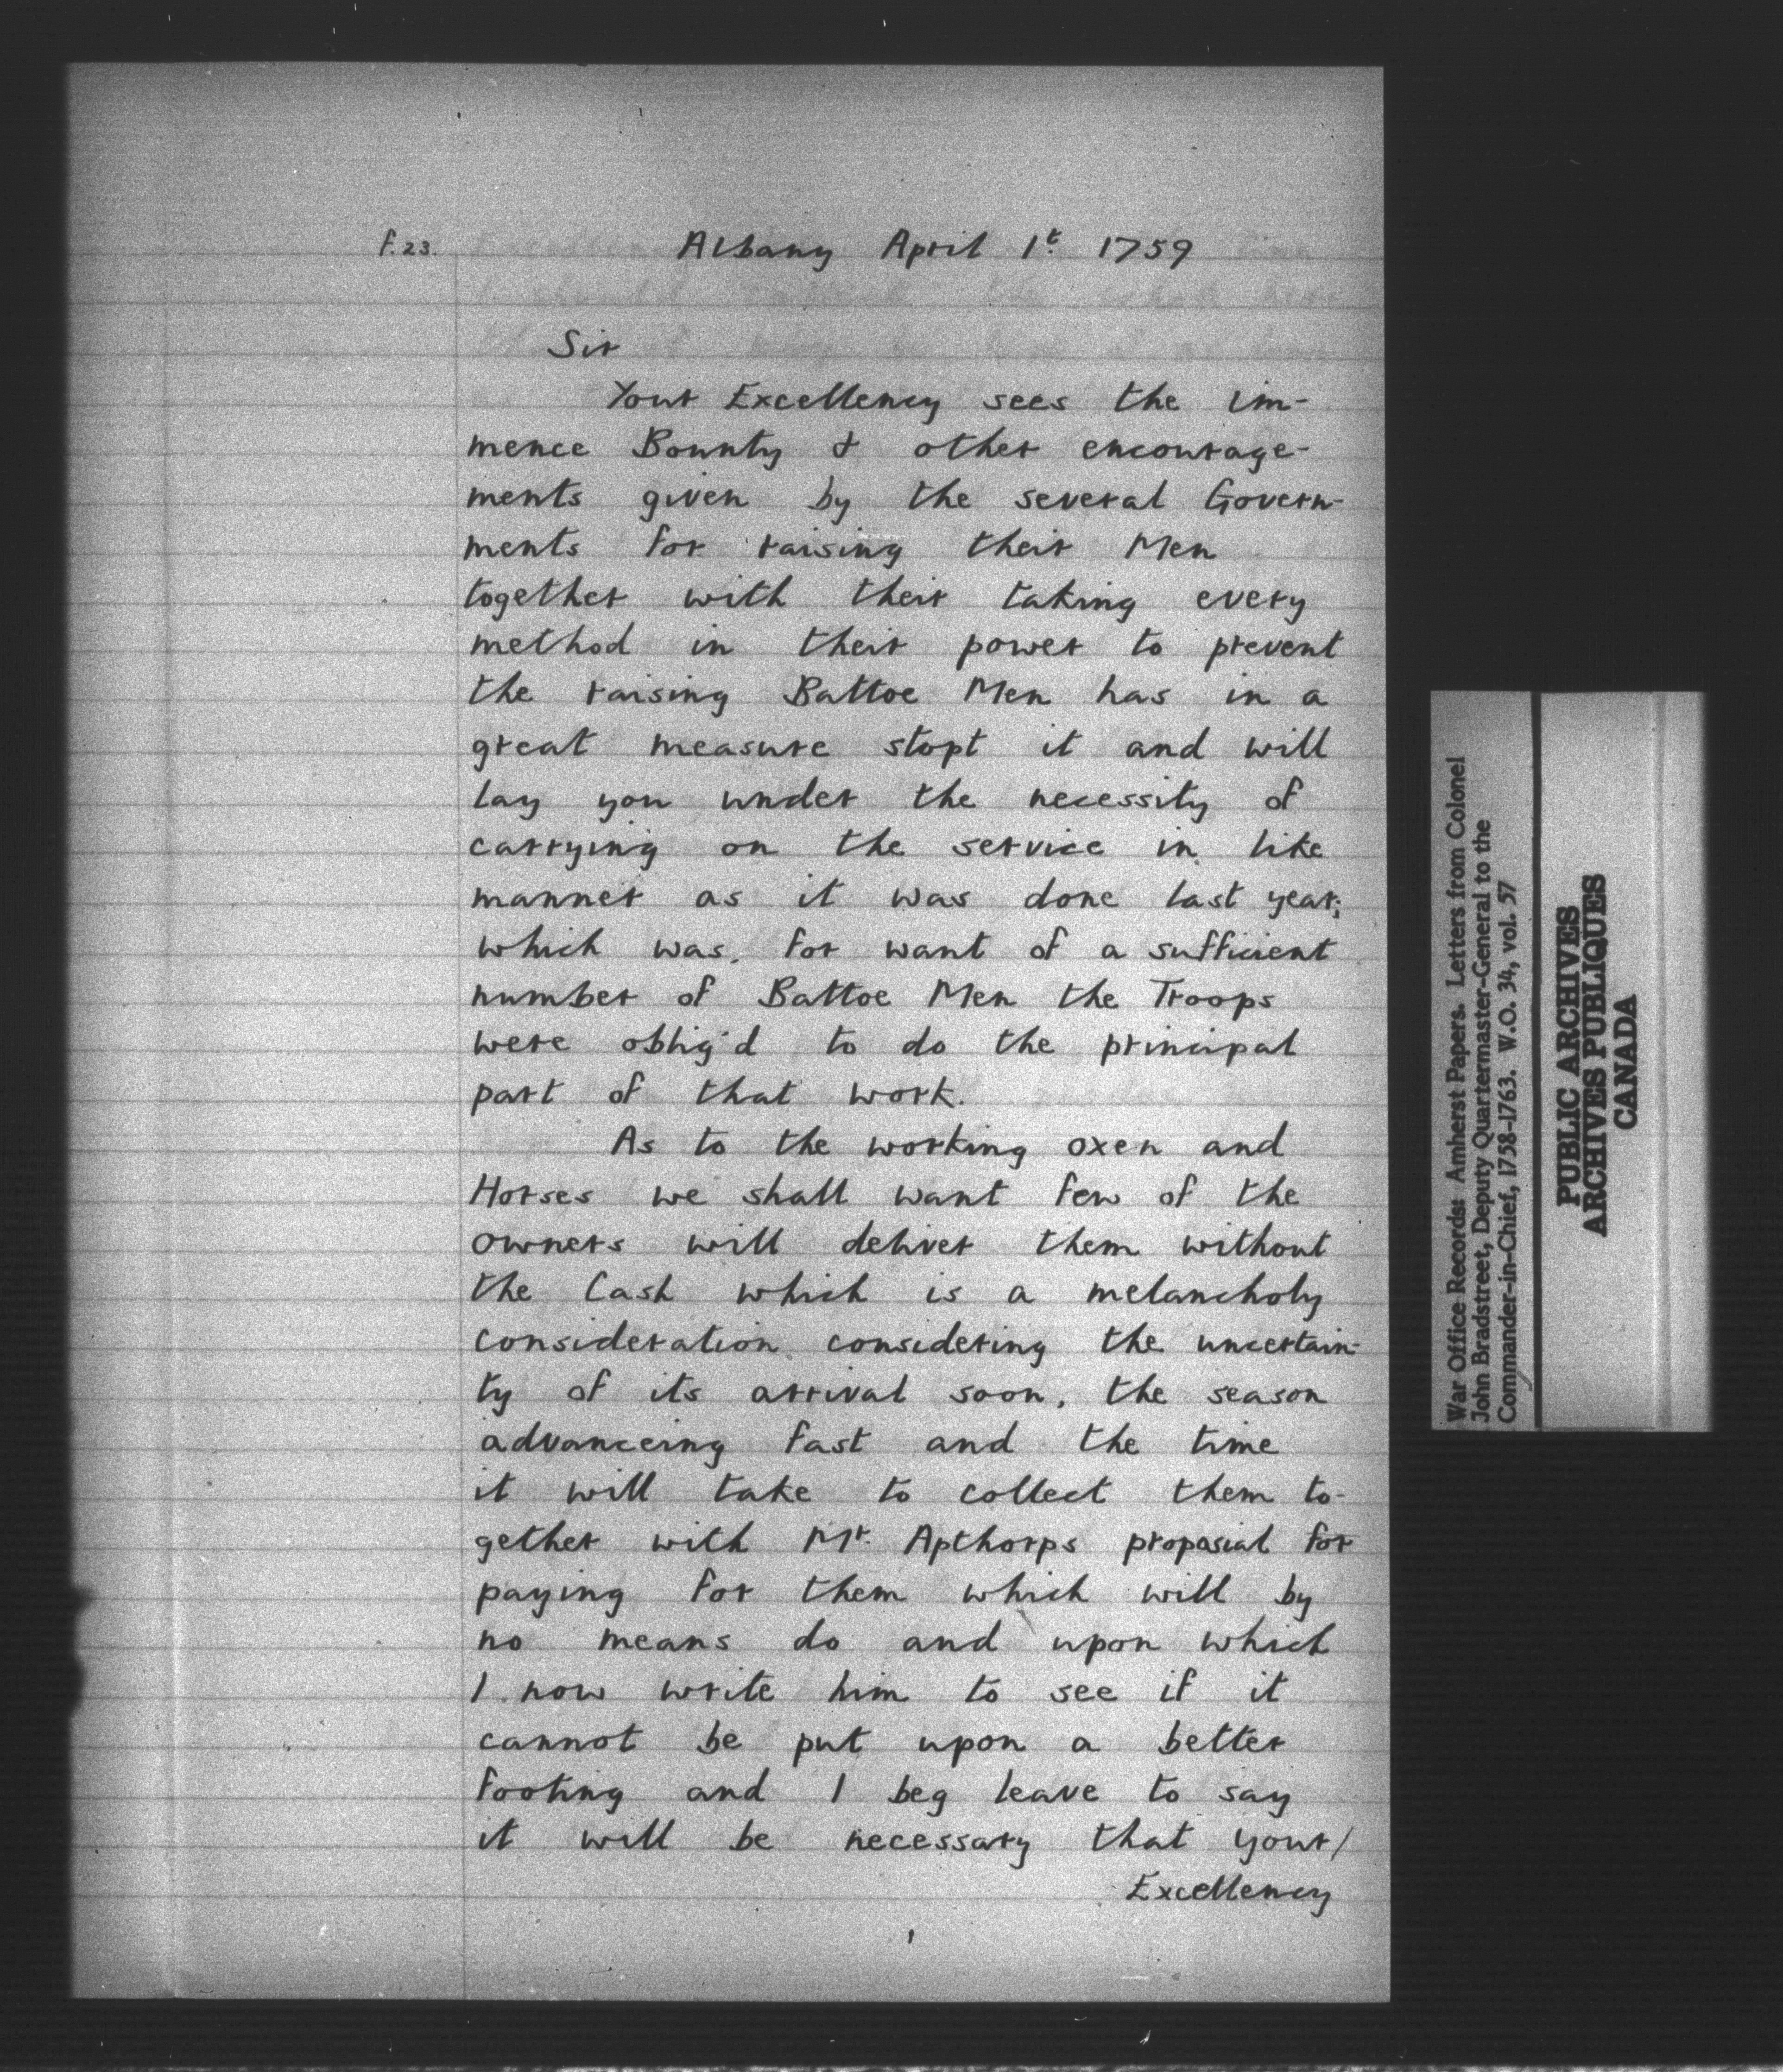 f.23.
Albany April 1t 1759
Sir
Your Excellency sees the im-
mence Bounty & other encourage-
ments given by the several Govern-
ments for raising their Men
together with their taking every
method in their power to prevent
the raising Battoe Men has in a
great measure stopt it and will
lay you under the necessity of
carrying on the service in like
manner as it was done last year;
which was, for want of a sufficient
number of Battoe Men the Troops
were oblig'd to do the principal
part of that work.
As to the working oxen and
Horses we shall want few of the
owners will deliver them without
the Cash which is a melancholy
consideration considering the uncertain-
ty of its arrival soon, the season
advanceing fast and the time
it will take to collect them to-
gether with Mr. Apthorps proposial for
paying for them which will by
no means do and upon which
I now write him to see if it
cannot be put upon a better
footing and I beg leave to say
it will be necessary that your/
Excellency
War Office Records: Amherst Papers. Letters from Colonel
John Bradstreet, Deputy Quartermaster-General to the
Commander-in-Chief, 1758-1763. W.O. 34, vol. 57
PUBLIC ARCHIVES
ARCHIVES PUBLIQUES
CANADA